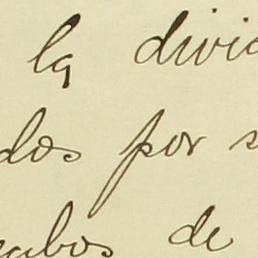 la divid
dos por s
cabos de